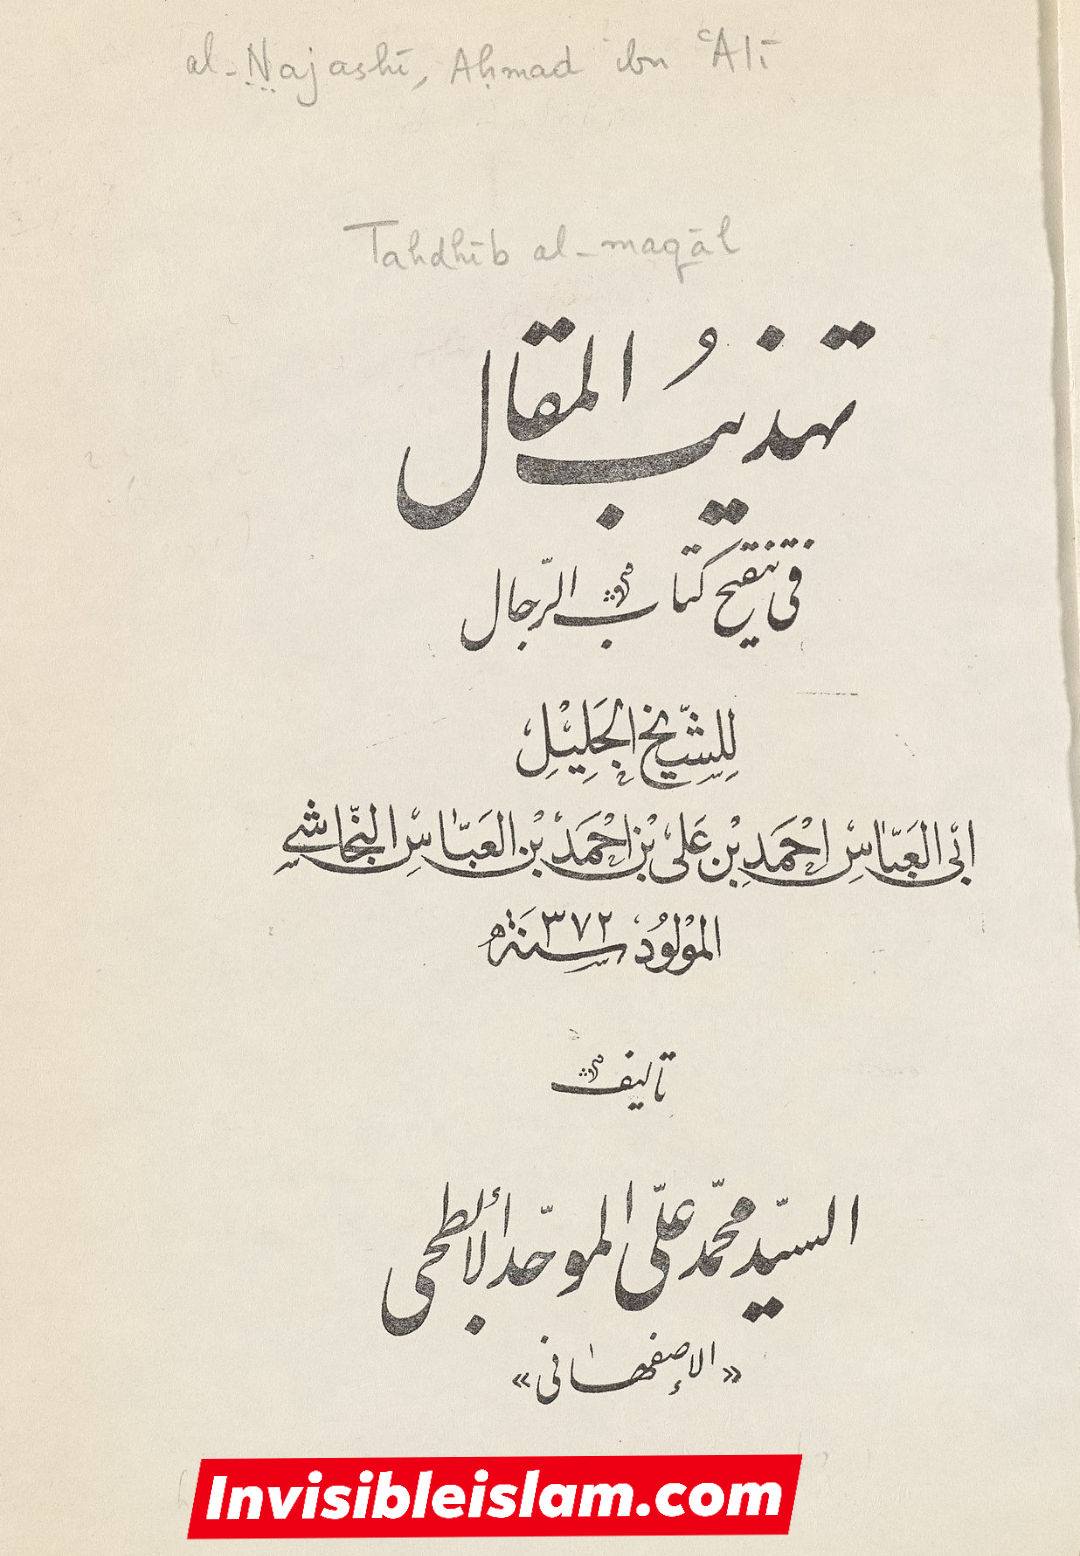 al-Najashī, Aḥmad ibn ʿAlī
Tahdhīb al-maqāl
تهذيبُ المقال
في تنقيح كتاب الرّجال
لِلشَّيْخِ الجَلِيْلِ
ابْي العَبّاسْ احْمَد بْن عَلى بْن احْمَدْ بْن العَبّاسْ النّجّاشي
المَوْلوُدْ سَنَة ٣٧٢
تأليف
السيّد محمّد علّى الموحّد الأبطحى
«الإصفهانى»
Invisibleislam.com